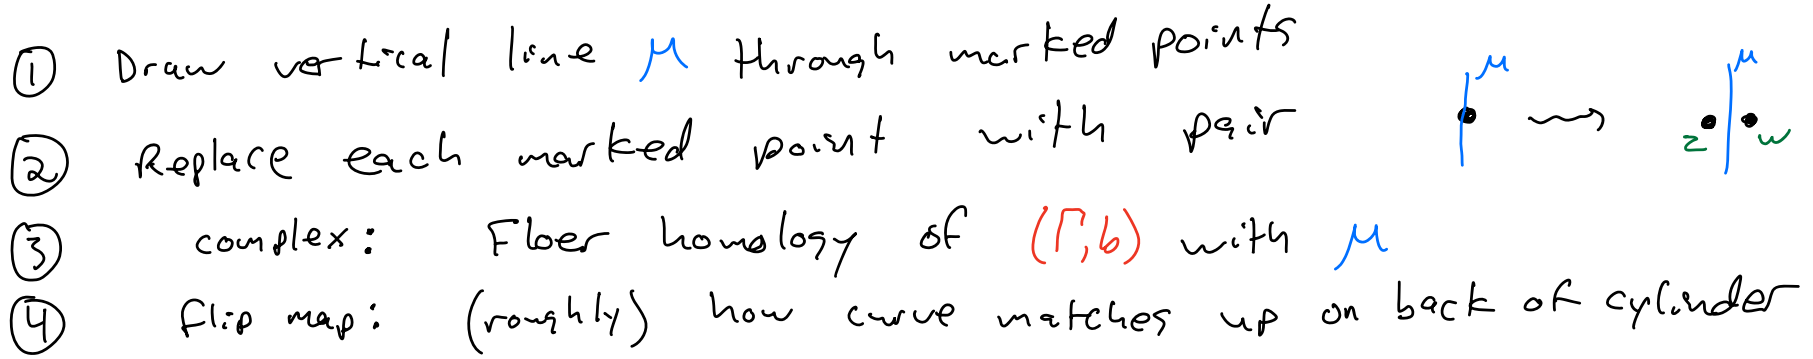 ① Draw vertical line μ through marked points
② Replace each marked point with pair
③ complex: Floer homology of (Γ, b) with μ
④ flip map: (roughly) how curve matches up on back of cylinder
μ μ
z w